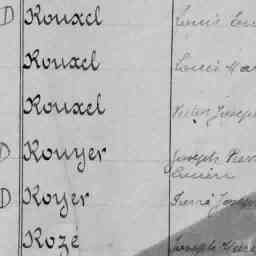 D Rouxel Louis
Rouxel Louis
Rouxel Victor Joseph
D Rouyer Joseph
D Royer Pierre Joseph
Rozé Joseph